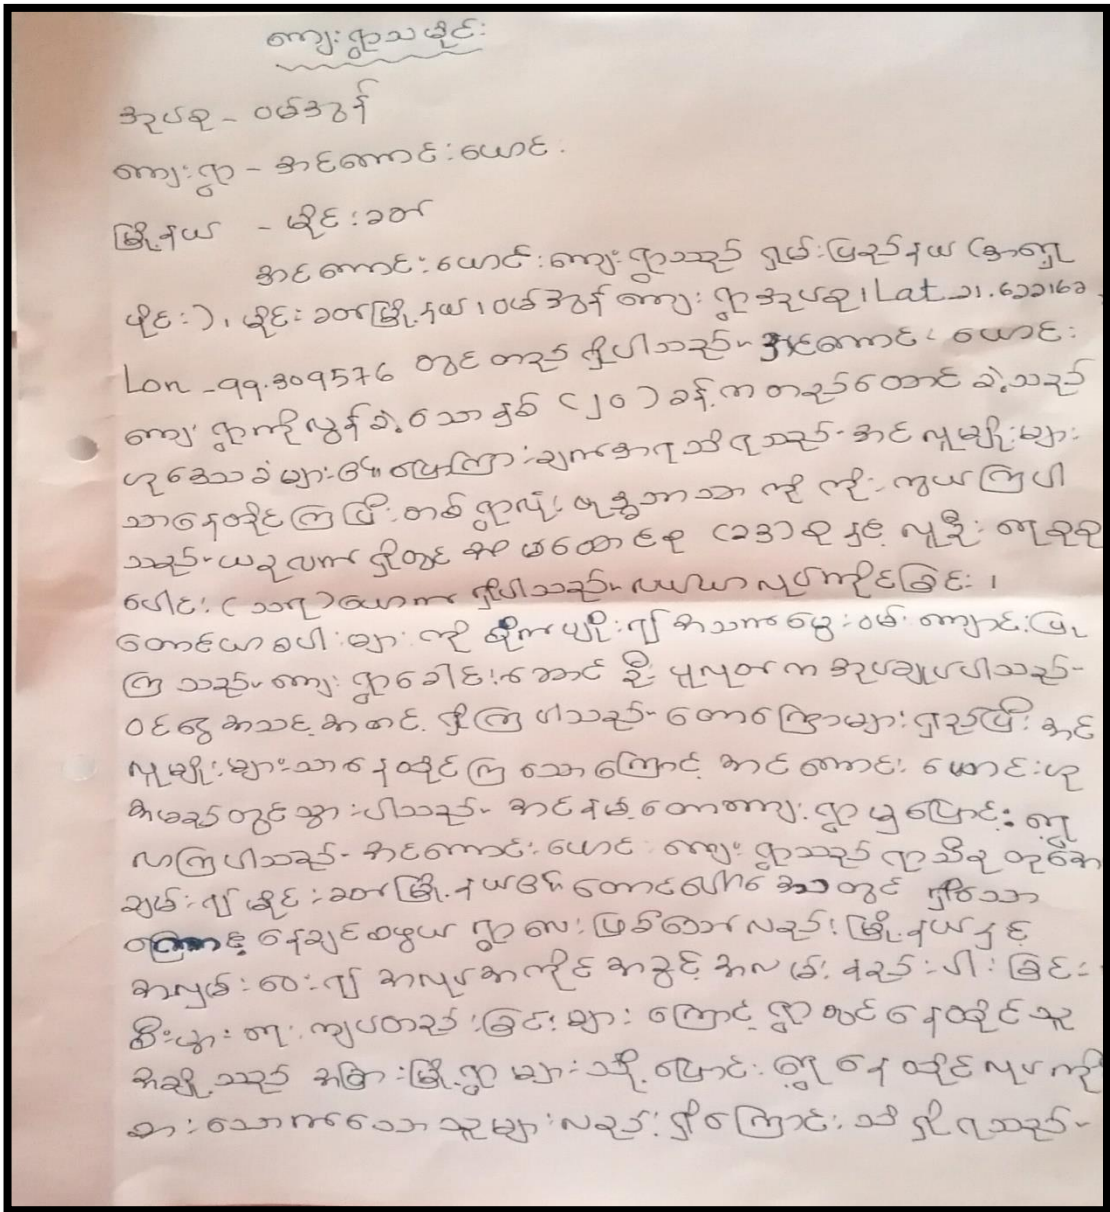 ကျေးရွာသမိုင်း
အုပ်စု - ဝမ်အွန်
ကျေးရွာ - အင်ကောင်းယောင်း
မြို့နယ် - မိုင်းခတ်
အင်ကောင်းယောင်းကျေးရွာသည် ရှမ်းပြည်နယ် (အရှေ့
ပိုင်း)၊ မိုင်းခတ်မြို့နယ်၊ ဝမ်အွန် ကျေးရွာအုပ်စု၊ Lat - 21.622162
Lon - 99.309576 တွင် တည်ရှိပါသည်။ အင်ကောင်းယောင်း
ကျေးရွာကိုလွန်ခဲ့သောနှစ် (၂၀) ခန့်ကတည်ထောင်ခဲ့သည်
ဟုဒေသခံများ၏ပြောကြားချက်အရသိရသည်။ အင်လူမျိုးများ
သာနေထိုင်ကြပြီး တစ်ရွာလုံး ဗုဒ္ဓဘာသာ ကို ကိုးကွယ်ကြပါ
သည်။ ယခုလက်ရှိတွင် အိမ်ထောင်စု (၁၃) စုနှင့် လူဦးရေစုစု
ပေါင်း (၁၁၇) ယောက် ရှိပါသည်။ လယ်ယာလုပ်ကိုင်ခြင်း၊
တောင်ယာစပါးများကို စိုက်ပျိုး၍ အသက်မွေးဝမ်းကျောင်းပြု
ကြသည်။ ကျေးရွာခေါင်းဆောင် ဦး အုပ်ချုပ်ပါသည်။
ဝင်ငွေအသင့်အတင့်ရှိကြပါသည်။ တောကြောများရှည်ပြီး အင်
လူမျိုးများသာနေထိုင်ကြသောကြောင့် အင်ကောင်းယောင်းဟု
အမည်တွင်သွားပါသည်။ ကျေးရွာမှ ပြောင်းရွှေ့
လာကြပါသည်။ အင်ကောင်းယောင်းကျေးရွာသည် ရာသီဥတုအေး
ချမ်း၍ မိုင်းခတ်မြို့နယ်၏ တောင်ပေါ်ဒေသတွင် ရှိသော
နေချင်စဖွယ် ရွာလေးဖြစ်သော်လည်း မြို့နယ်နှင့်
အလှမ်းဝေး၍ အလုပ်အကိုင်အခွင့်အလမ်း နည်းပါးခြင်း
စီးပွားရေးကျပ်တည်းခြင်းများကြောင့် ရွာတွင်နေထိုင်သူ
အချို့သည် အခြားမြို့ရွာများသို့ ပြောင်းရွှေ့နေထိုင်လုပ်ကိုင်
စားသောက်သောသူများလည်းရှိကြောင်း သိရှိရသည်။